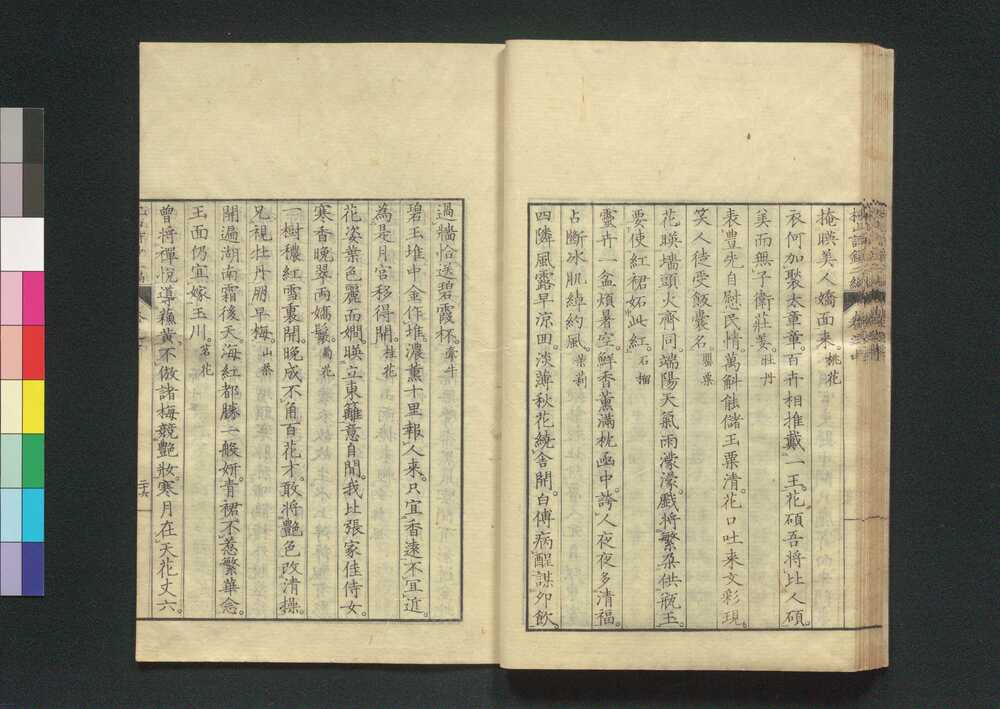 掩暎美人嬌面来。桃花
衣何加袈太章章。百卉相推戴一王。花碩吾將比人碩。
美而無子衛莊姜。牡丹
衷豊先自慰民情。萬斛能儲玉粟清。花口吐来文彩現。
笑人徒受飯囊名。罌粟
花暎墻頭火齊同。端陽天氣雨濛濛。戲將繁朶供瓶玉。
要使紅裙妬此紅。石榴
靈卉一盆煩暑空。鮮香薫滿枕函中。誇人夜夜多清福。
占斷冰肌綽約風。茉莉
四隣風露早凉回。淡薄秋花繞舍開。白傅病醒謀夘飲。
過牆恰送碧霞杯。牽牛
碧玉堆中金作堆。濃薫十里報人来。只宜香遠不宜近。
為是月宮移得開。桂花
花姿葉色麗而嫺。暎立東籬意自閒。我比張家佳侍女。
寒香晚翠両嬌鬟。菊花
一樹穠紅雪裏開。晩成不負百花才。敢將艷色改清操。
兄視牡丹朋早梅。山茶
開遍湖南霜後天。海紅都勝一般妍。青裙不惹繁華念。
玉面仍宜嫁玉川。茗花
曽將禪悅導蘇黄。不倣諸梅競艷妝。寒月在天花丈六。
二十六